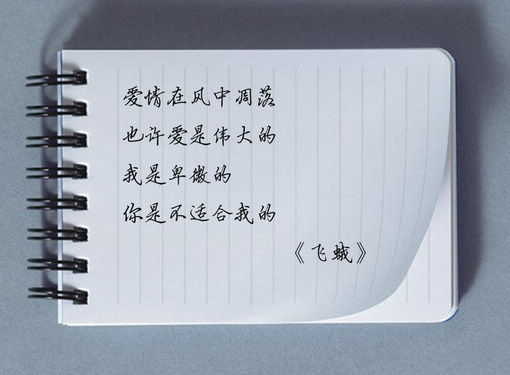 爱情在风中凋落
也许爱是伟大的
我是卑微的
你是不适合我的
《飞蛾》